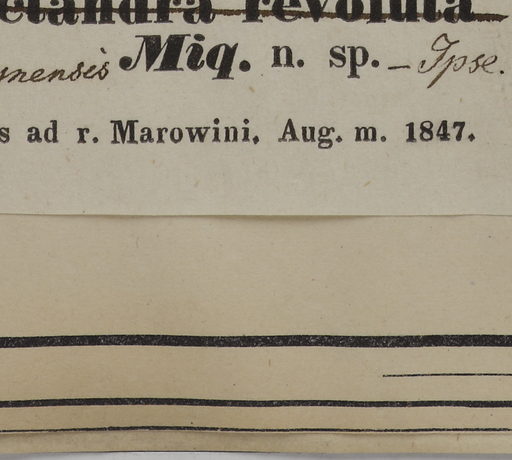 etandra revoluta
nensis Miq. n. sp. – Ipse.
s ad r. Marowini, Aug. m. 1847.